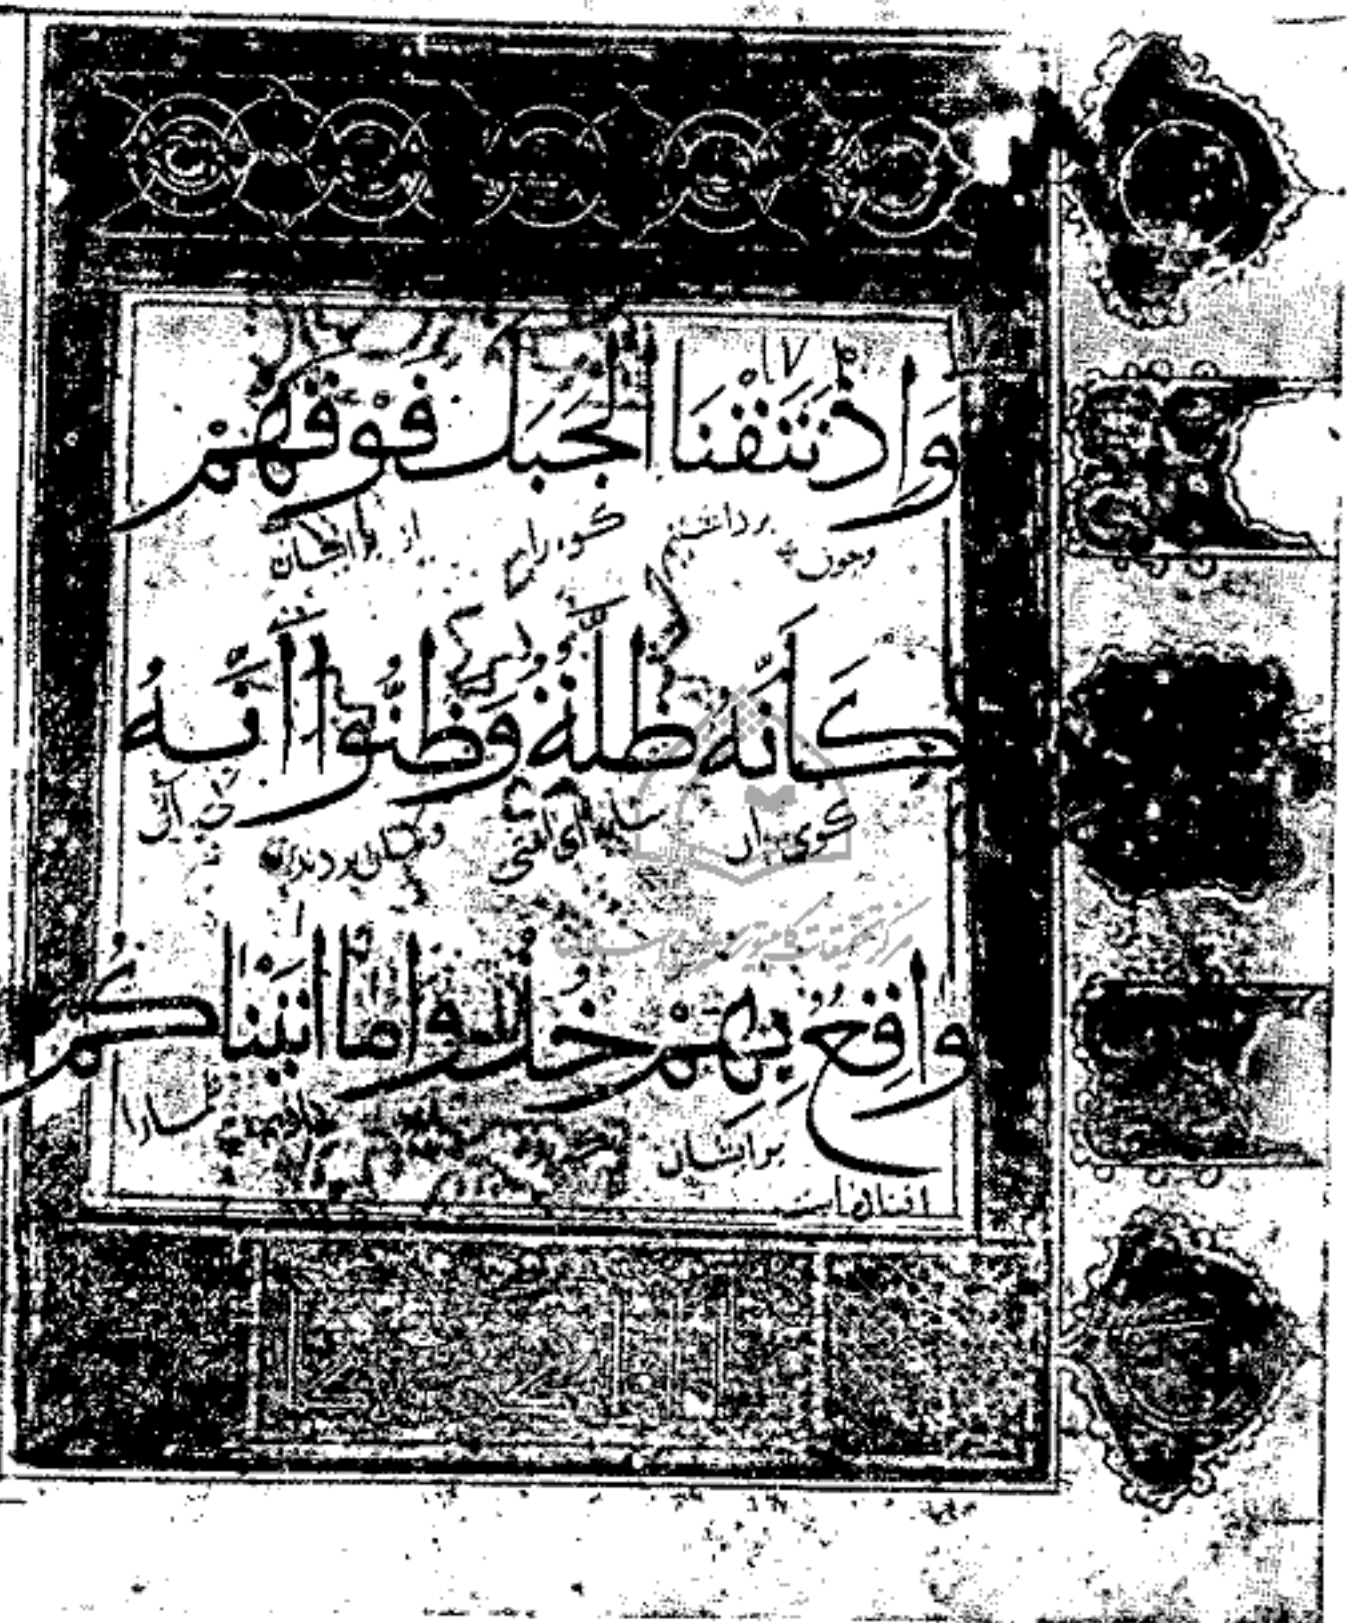 وَاِذْ نَتَقْنَا الْجَبَلَ فَوْقَهُمْ
وچون برداشتیم کوه را از بالا ایشان
كَاَنَّهُ ظُلَّةٌ وَظَنُّوا اَنَّهُ
گوی آن سایه ای استی وگمان بردند که آن
وَاقِعٌ بِهِمْ خُذُوا مَا اتَيْنَاكُمْ
افتاده است برایشان شما را